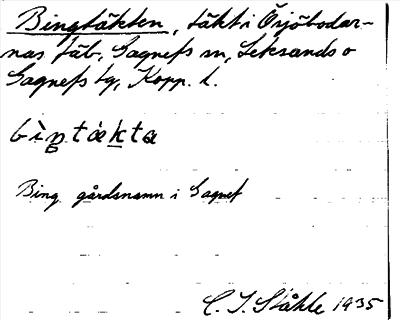 Bingtäkten, täkt i Örjöbodar-
nas fäb, Gagnefs sn, Leksands o
Gagnefs tg, Kopp. l.
bìŋtàkta
Bing gårdsnamn i Gagnef
C. I. Ståhle 1935